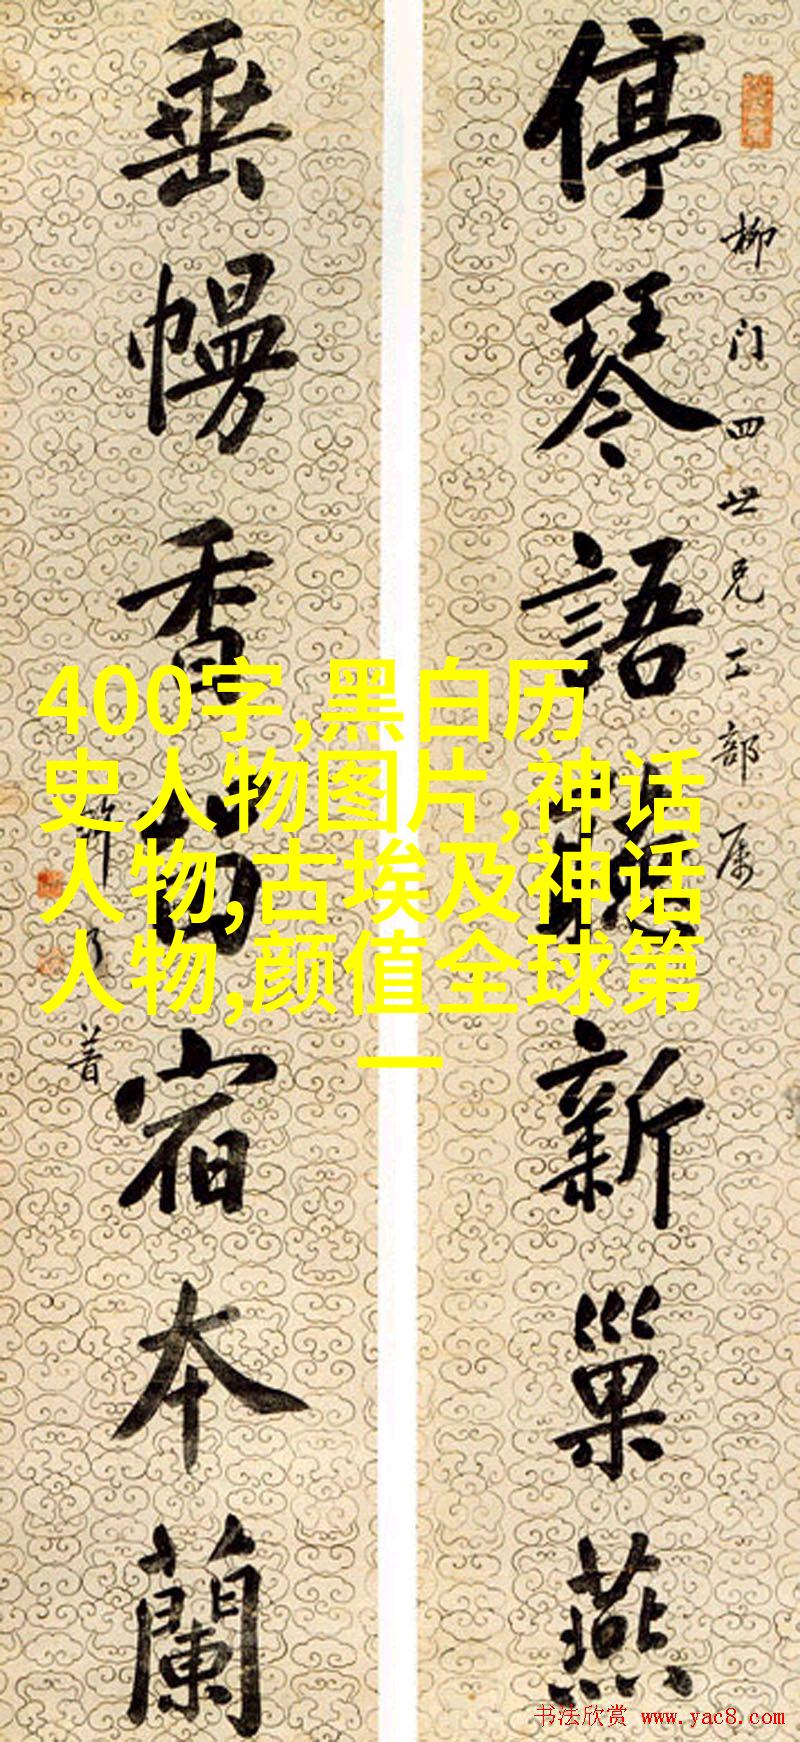 停琴語新巢燕
柳门四世兄工部属
垂幔香宿本蘭
普
400字,黑白历
史人物图片,神话
人物,古埃及神话
人物,颜值全球第
一
书法欣赏 www.yac8.com